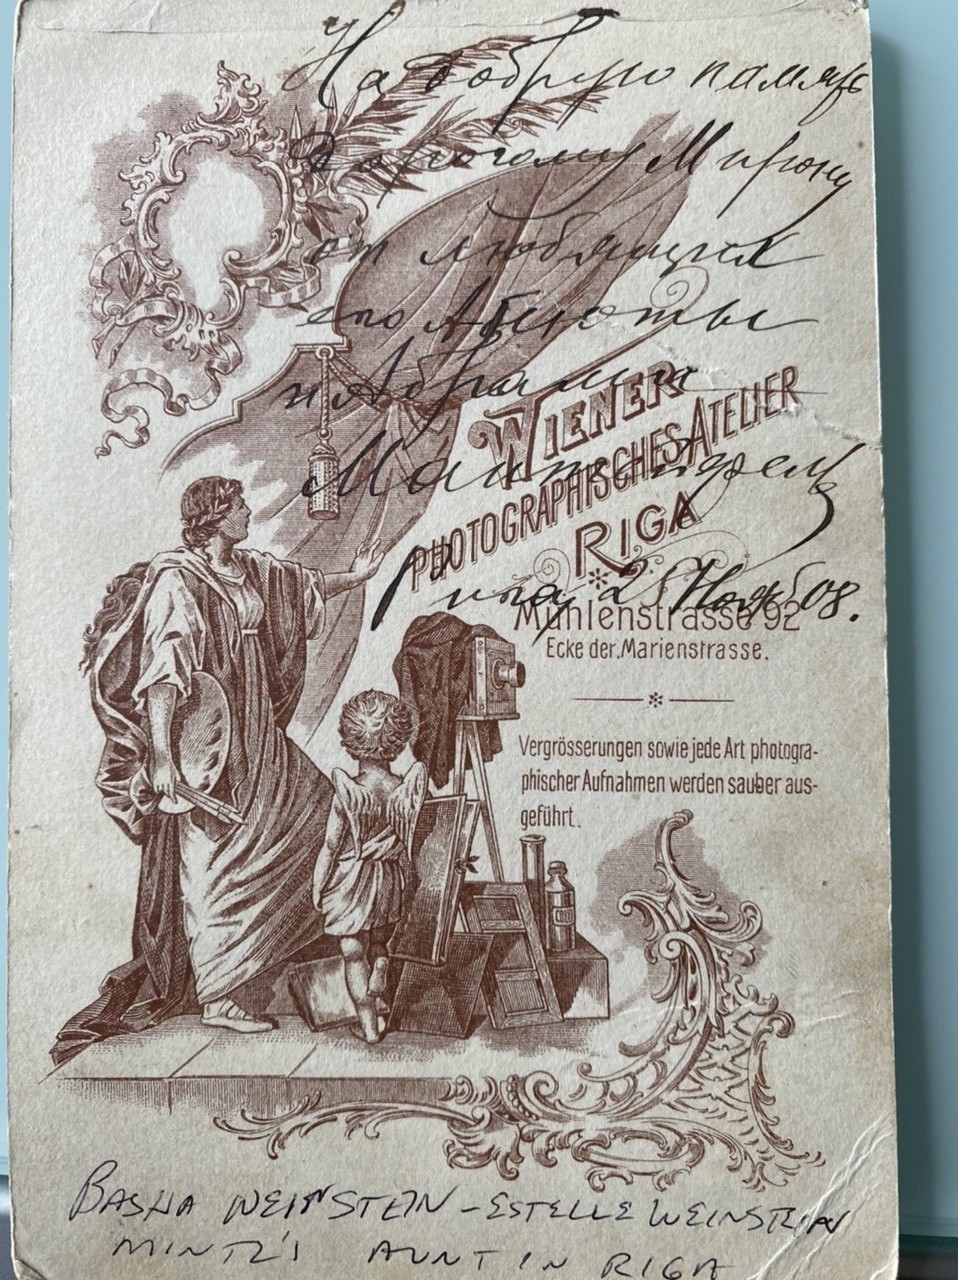 На добрую память
дорогому Мирону
от любящих
его
и Абрама
WIENER
PHOTOGRAPHISCHES ATELIER
RIGA
Рига, Нояб 08.
Mühlenstrasse 92
Ecke der Marienstrasse.
Vergrösserungen sowie jede Art photogra-
phischer Aufnahmen werden sauber aus-
geführt.
BASHA WEINSTEIN - ESTELLE WEINSTEIN
MINTZ'S AUNT IN RIGA